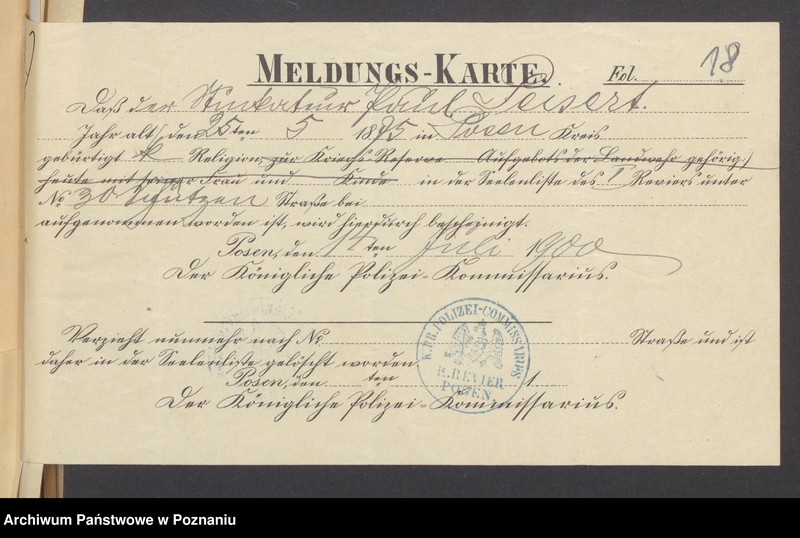 MELDUNGS-KARTE. Fol. 18
Daß der Stuckateur Paul Peisert.
Jahr alt, den 25ten 5 1875 in Posen Kreis
gebürtigt k Religion, zur Kriegs-Reserve Aufgebots der Landwehr gehörig,
heute mit seiner Frau und Kinde in der Seelenliste des I Reviers unter
No 30 Schützen Straße bei
aufgenommen worden ist, wird hierdurch bescheinigt.
Posen, den ten Juli 1900
Der Königliche Polizei-Kommissarius.
Verzieht nunmehr nach No. Straße und ist
daher in der Seelenliste gelöscht worden.
Posen, den ten 1
Der Königliche Polizei-Kommissarius.
K. PR. POLIZEI-COMMISSARIUS
REVIER
POSEN.
Archiwum Państwowe w Poznaniu